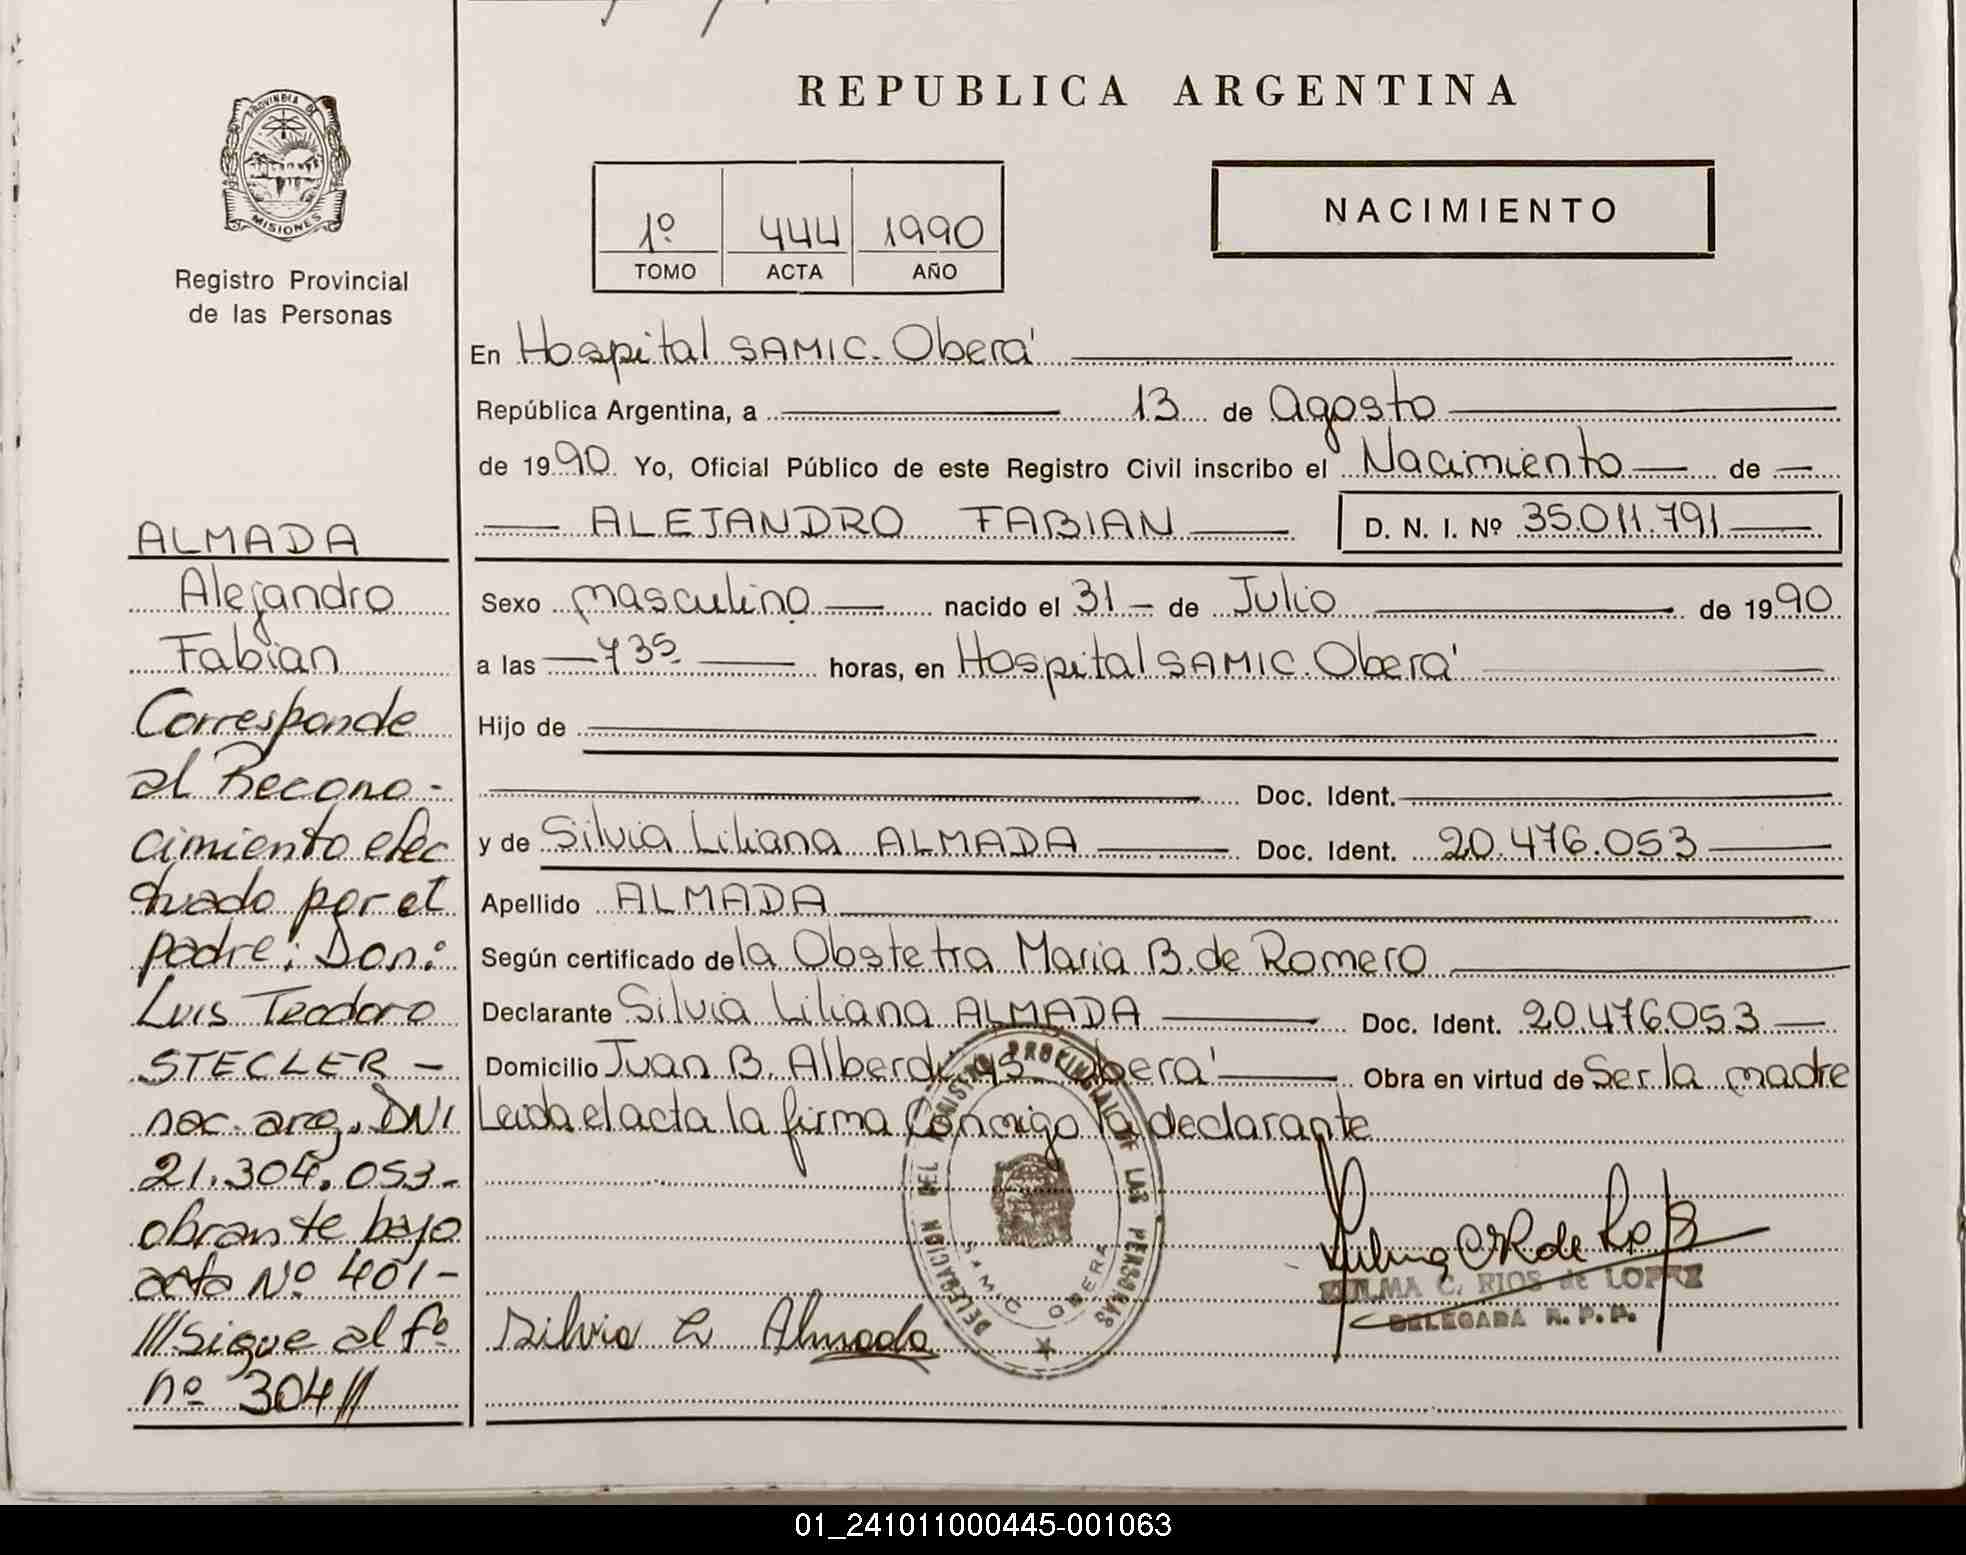 REPUBLICA ARGENTINA
PROVINCIA DE
MISIONES
Registro Provincial
de las Personas
1º 444 1990
TOMO ACTA AÑO
NACIMIENTO
En Hospital SAMIC. Oberá
República Argentina, a 13 de Agosto
de 1990 Yo, Oficial Público de este Registro Civil inscribo el Nacimiento de
ALEJANDRO FABIAN D. N. I. Nº 35.011.791
Sexo masculino nacido el 31 de Julio de 1990
a las 735 horas, en Hospital SAMIC. Oberá
Hijo de
Doc. Ident.
y de Silvia Liliana ALMADA Doc. Ident. 20.476.053
Apellido ALMADA
Según certificado de la Obstetra Maria B. de Romero
Declarante Silvia Liliana ALMADA Doc. Ident. 20.476.053
Domicilio Juan B. Alberdi Oberá Obra en virtud de Ser la madre
Leida el acta la firma Conmigo la declarante
DELEGACION DEL REGISTRO PROVINCIAL DE LAS PERSONAS
SAMIC OBERA
Zulma C R de Lopez
ZULMA C. RIOS de LOPEZ
DELEGADA R. P. P.
Silvia L Almada
ALMADA
Alejandro
Fabian
Corresponde
al Recono-
cimiento efec
tuado por el
padre: Don:
Luis Teodoro
STECLER -
nac. arg. DNI
21.304.053-
obrante bajo
acta Nº 401-
///Sigue al fº
nº 304//
01_241011000445-001063